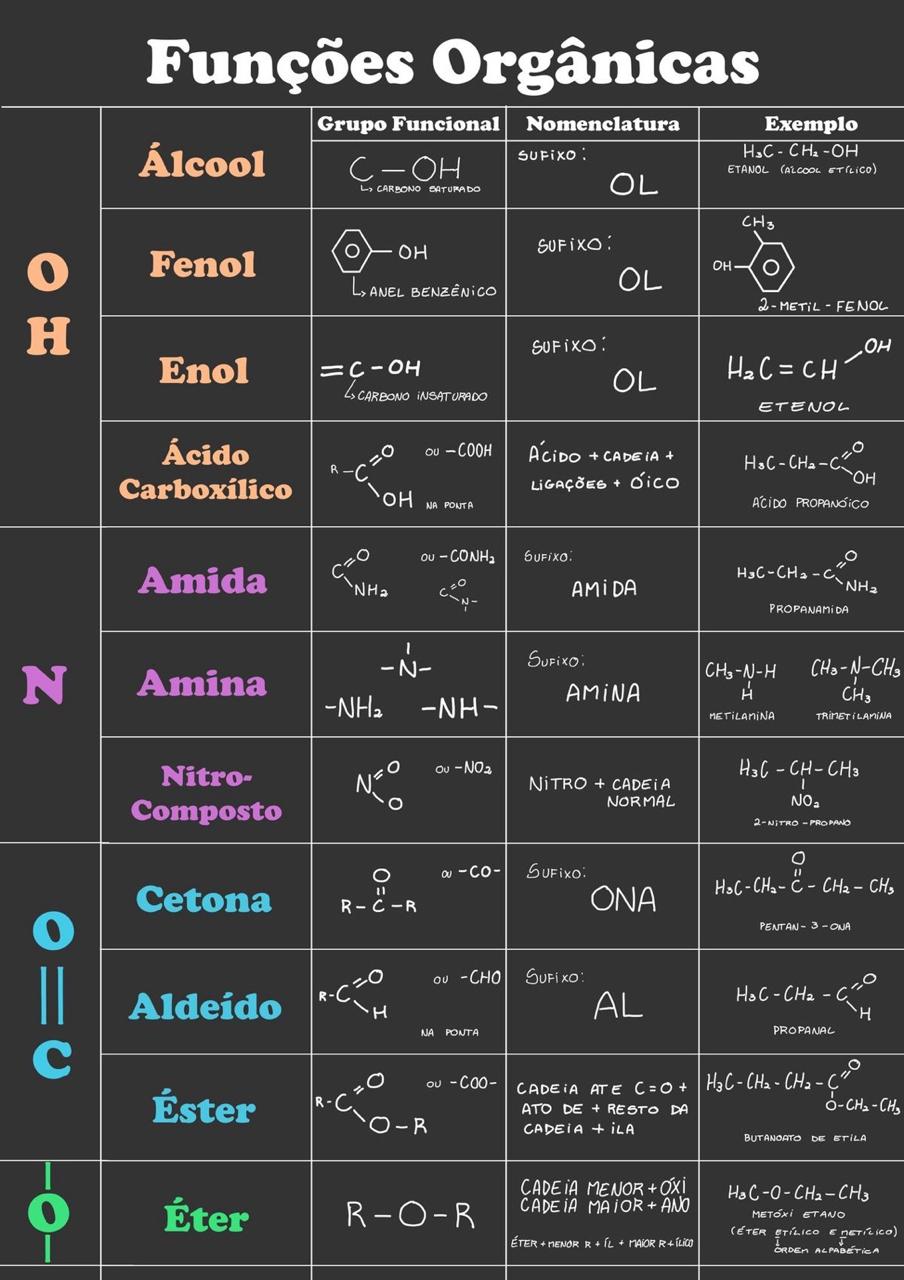 Funções Orgânicas
Grupo Funcional Nomenclatura Exemplo
O
H
Álcool
C - OH
↳ CARBONO SATURADO
SUFIXO:
OL
H₃C - CH₂ - OH
ETANOL (ÁLCOOL ETÍLICO)
Fenol
- OH
↳ ANEL BENZÊNICO
SUFIXO:
OL
CH₃
OH
2-METIL-FENOL
Enol
= C - OH
↳ CARBONO INSATURADO
SUFIXO:
OL
OH
H₂C = CH
ETENOL
Ácido
Carboxílico
O
R - C
OH
OU -COOH
NA PONTA
ÁCIDO + CADEIA +
LIGAÇÕES + ÓICO
O
H₃C-CH₂-C
OH
ÁCIDO PROPANÓICO
N
Amida
O
C
NH₂
OU -CONH₂
O
C
N-
SUFIXO:
AMIDA
O
H₃C-CH₂-C
NH₂
PROPANAMIDA
Amina
-N-
-NH₂ -NH-
SUFIXO:
AMINA
CH₃-N-H
H
METILAMINA
CH₃-N-CH₃
CH₃
TRIMETILAMINA
Nitro-
Composto
O
N
O
OU -NO₂
NITRO + CADEIA
NORMAL
H₃C - CH - CH₃
NO₂
2-NITRO-PROPANO
O
C
Cetona
O
R - C - R
OU -CO-
SUFIXO:
ONA
O
H₃C-CH₂-C-CH₂-CH₃
PENTAN-3-ONA
Aldeído
O
R-C
H
OU -CHO
NA PONTA
SUFIXO:
AL
O
H₃C-CH₂-C
H
PROPANAL
Éster
O
R-C
O-R
OU -COO-
CADEIA ATE C=O +
ATO DE + RESTO DA
CADEIA + ILA
O
H₃C-CH₂-CH₂-C
O-CH₂-CH₃
BUTANOATO DE ETILA
O
Éter
R-O-R
CADEIA MENOR + ÓXI
CADEIA MAIOR + ANO
ÉTER + MENOR R + ÍL + MAIOR R + ÍLICO
H₃C-O-CH₂-CH₃
METÓXI ETANO
(ÉTER ETÍLICO E METÍLICO)
ORDEM ALFABÉTICA